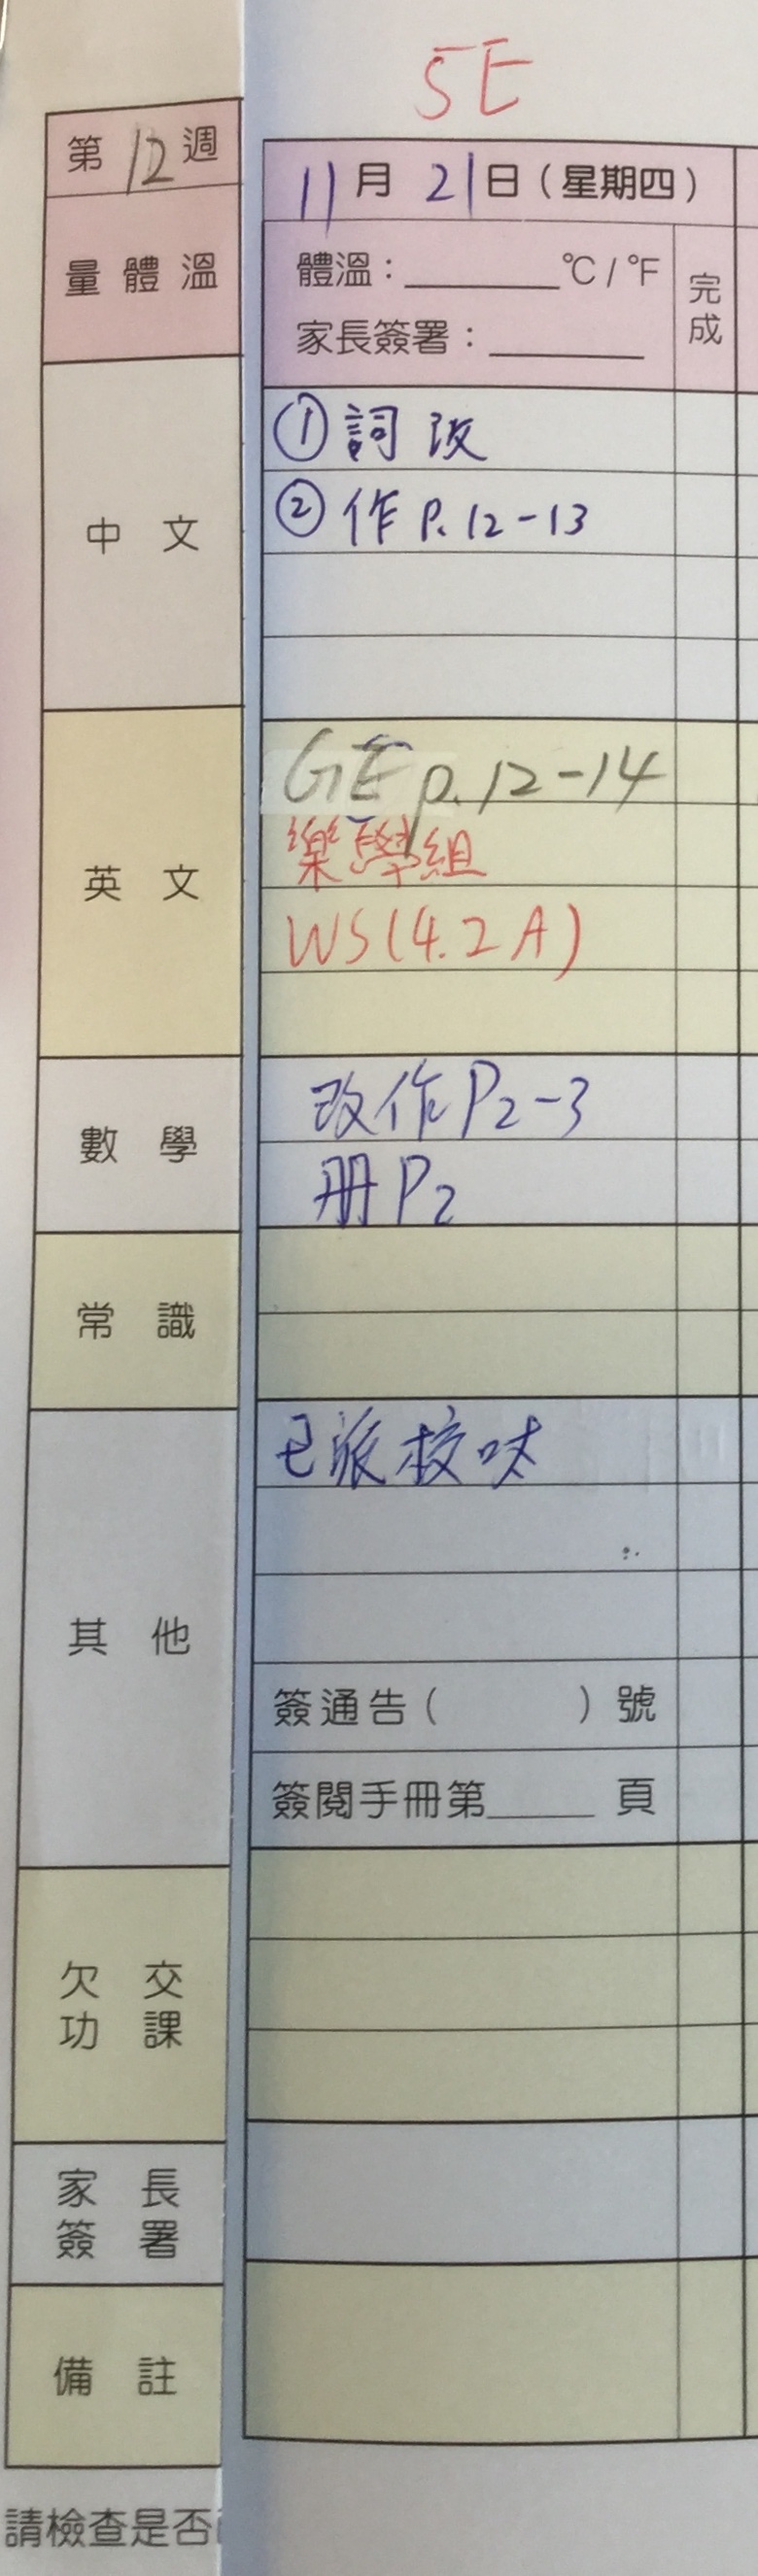 5E
第12週
11月21日(星期四)
量體溫
體溫:______°C/°F
家長簽署:______
完成
中文
①詞改
②作P.12-13
英文
GE p.12-14
樂學組
WS(4.2A)
數學
改作P2-3
冊P2
常識
其他
已派校呔
簽通告( )號
簽閱手冊第____頁
欠交功課
家長簽署
備註
請檢查是否